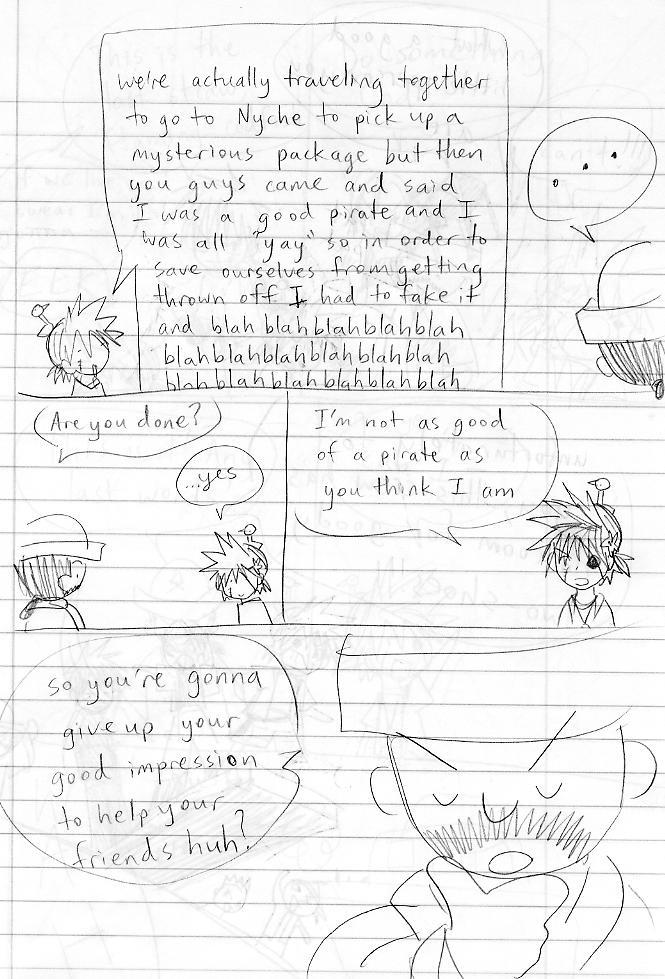 we're actually traveling together
to go to Nyche to pick up a
mysterious package but then
you guys came and said
I was a good pirate and I
was all "yay" so in order to
save ourselves from getting
thrown off I had to fake it
and blah blah blahblahblah
blahblahblahblahblahblah
blahblahblahblahblahblah
...
Are you done?
...yes
I'm not as good
of a pirate as
you think I am
so you're gonna
give up your
good impression
to help your
friends huh?